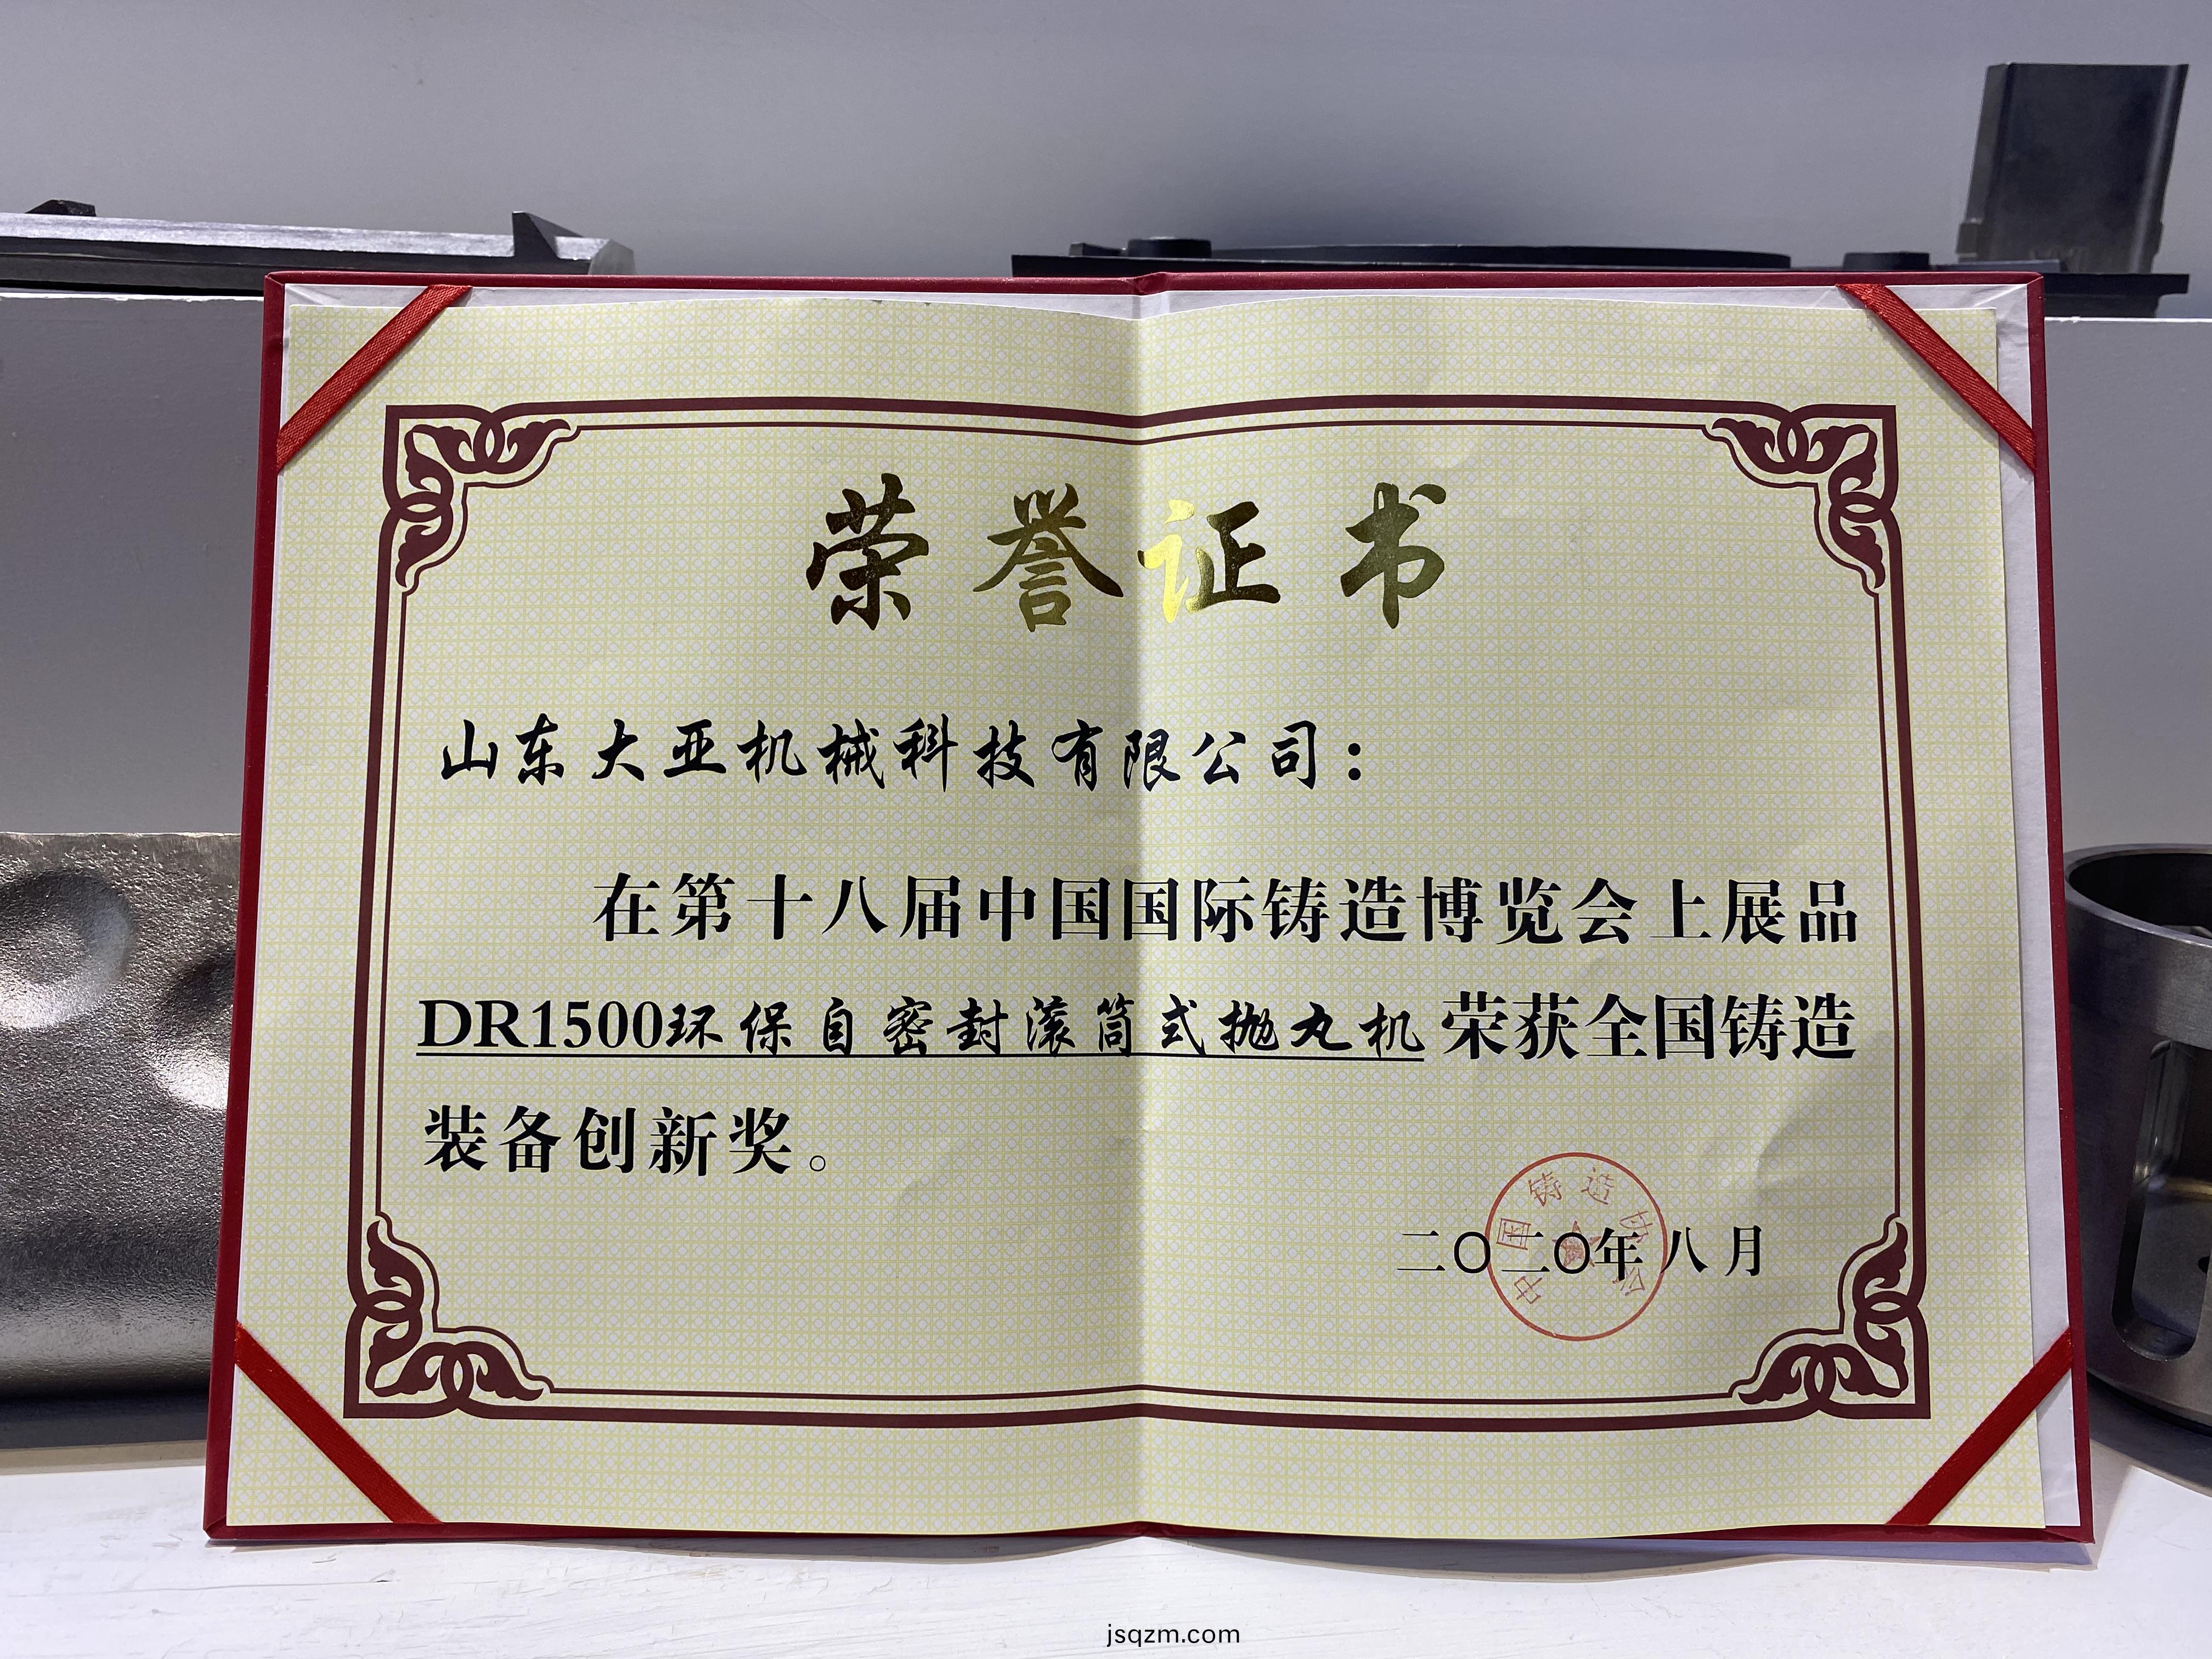 荣誉证书
山东大亚机械科技有限公司：
在第十八届中国国际铸造博览会上展品
DR1500环保自密封滚筒式抛丸机荣获全国铸造
装备创新奖。
中国铸造协会
二〇二〇年八月
jsqzm.com